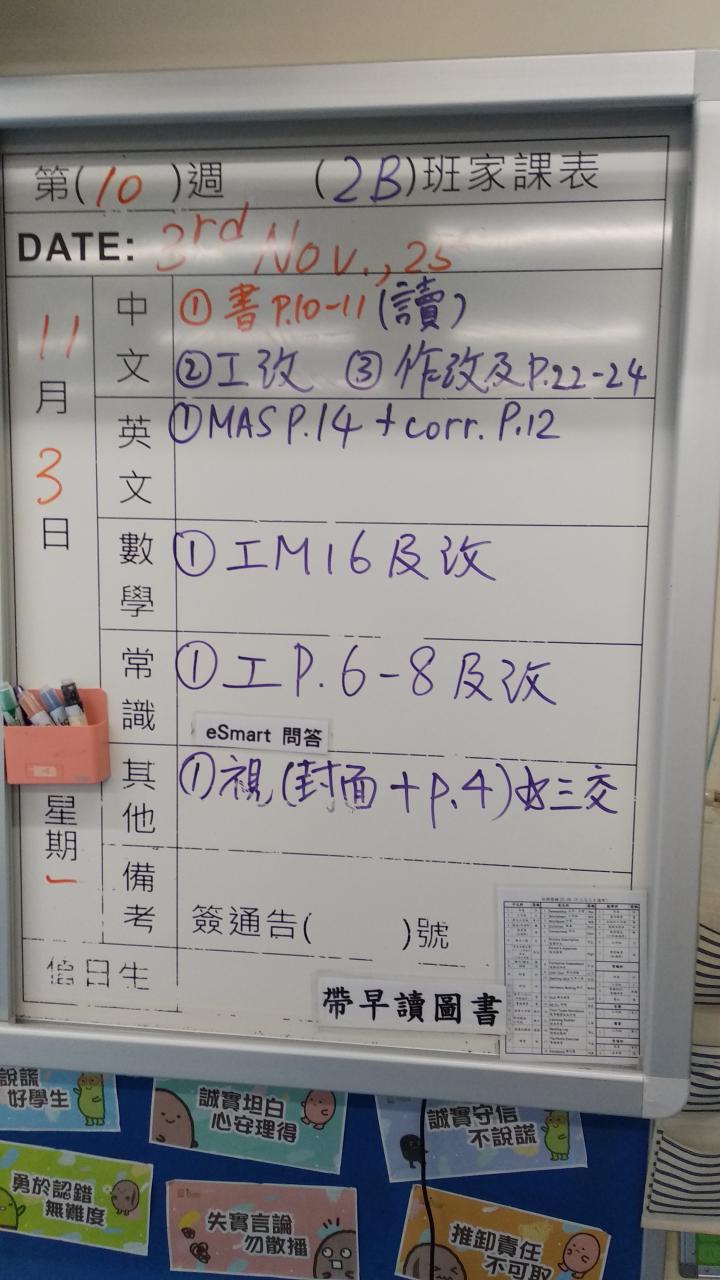 第(10)週 (2B)班家課表
DATE: 3rd Nov., 25
11月3日
星期一
中文
①書P.10-11(讀)
②工改 ③作改及P.22-24
英文
①MAS P.14 + corr. P.12
數學
①工M16及改
常識
①工P.6-8及改
eSmart 問答
其他
①視(封面+p.4)☆三交
備考
簽通告( )號
值日生
帶早讀圖書
說謊
好學生
誠實坦白
心安理得
誠實守信
不說謊
勇於認錯
無難度
失實言論
勿散播
推卸責任
不可取